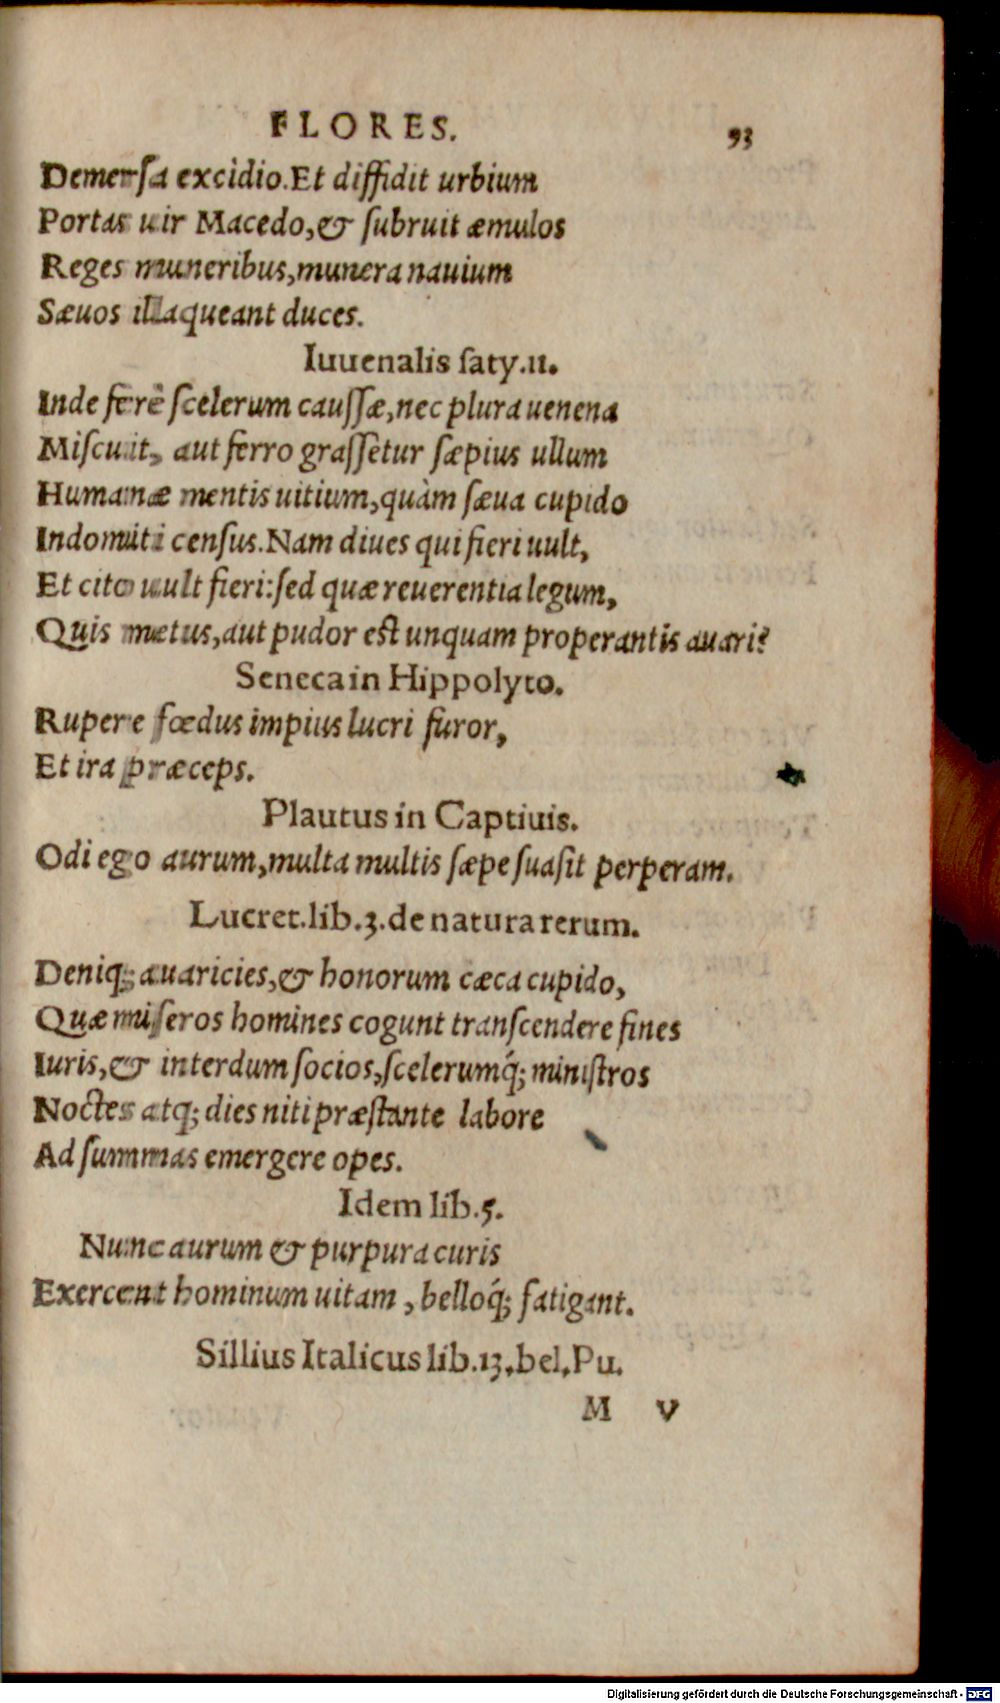 FLORES. 93
Demersa excidio. Et diffidit urbium
Portas uir Macedo, & subruit æmulos
Reges muneribus, munera nauium
Sæuos illaqueant duces.
Iuuenalis saty. 11.
Inde ferè scelerum caussæ, nec plura uenena
Miscuit, aut ferro grassetur sæpius ullum
Humanæ mentis uitium, quàm sæua cupido
Indomiti census. Nam diues qui fieri uult,
Et cito uult fieri: sed quæ reuerentia legum,
Quis metus, aut pudor est unquam properantis auari?
Seneca in Hippolyto.
Rupere fœdus impius lucri furor,
Et ira præceps.
Plautus in Captiuis.
Odi ego aurum, multa multis sæpe suasit perperam.
Lucret. lib. 3. de natura rerum.
Deniq; auaricies, & honorum cæca cupido,
Quæ miseros homines cogunt transcendere fines
Iuris, & interdum socios, scelerumq́; ministros
Noctes atq; dies niti præstante labore
Ad summas emergere opes.
Idem lib. 5.
Nunc aurum & purpura curis
Exercent hominum uitam, belloq́; fatigant.
Sillius Italicus lib. 13. bel. Pu.
M V
Digitalisierung gefördert durch die Deutsche Forschungsgemeinschaft - DFG